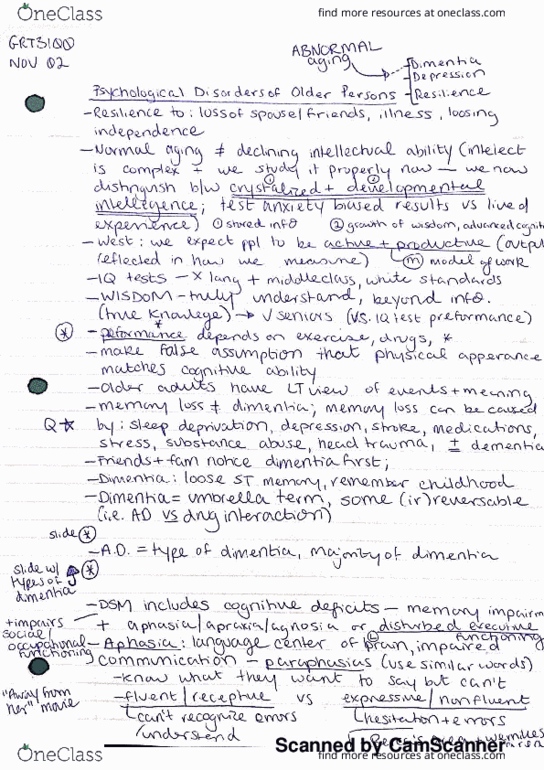 OneClass
find more resources at oneclass.com
GRT3100
NOV 02
ABNORMAL
aging
Dimentia
Depression
Resilience
Psychological Disorders of Older Persons
-Resilience to: loss of spouse/friends, illness, loosing
independence
-Normal aging ≠ declining intellectual ability (intelect
is complex + we study it properly now — we now
distingush b/w crystalized ① + developmental ②
intellegence; test anxiety based results vs lived
experience) ① stored info ② growth of wisdom, advanced cognit
-West: we expect ppl to be active + productive (output
reflected in how we measure) (m) model of work
-IQ tests - X lang + middleclass, white standards
-WISDOM - truly understand, beyond info.
(true knowlege) → √ seniors (vs. IQ test preformance)
* -peformance* depends on exercise, drugs, *
-make false assumption that physical apperance
matches cognitive ability
-Older adults have LT view of events + meaning
-memory loss ≠ dimentia; memory loss can be caused
Q* by: sleep deprivation, depression, stroke, medications,
stress, substance abuse, head trauma, ± dementia
-Friends + fam notice dimentia first;
-Dimentia: loose ST memory, remember childhood
-Dimentia = umbrella term, some (ir)reversable
(i.e. AD vs drug interaction)
slide *
-A.D. = type of dimentia, majority of dimentia
slide w/
types of
dimentia
*
-DSM includes cognitive deficits - memory impairm
+ aphasia/apraxia/agnosia or disturbed execuive
functioning
+impairs
social/
occupational
functioning
-Aphasia: language center of brain, impaired
communication - paraphasias (use similar words)
-know what they want to say but can't
"Away from
her" movie
-fluent/receptive vs expressive/nonfluent
can't recognize errors
/understand
hesitation + errors
OneClass
Scanned by CamScanner
find more resources at oneclass.com